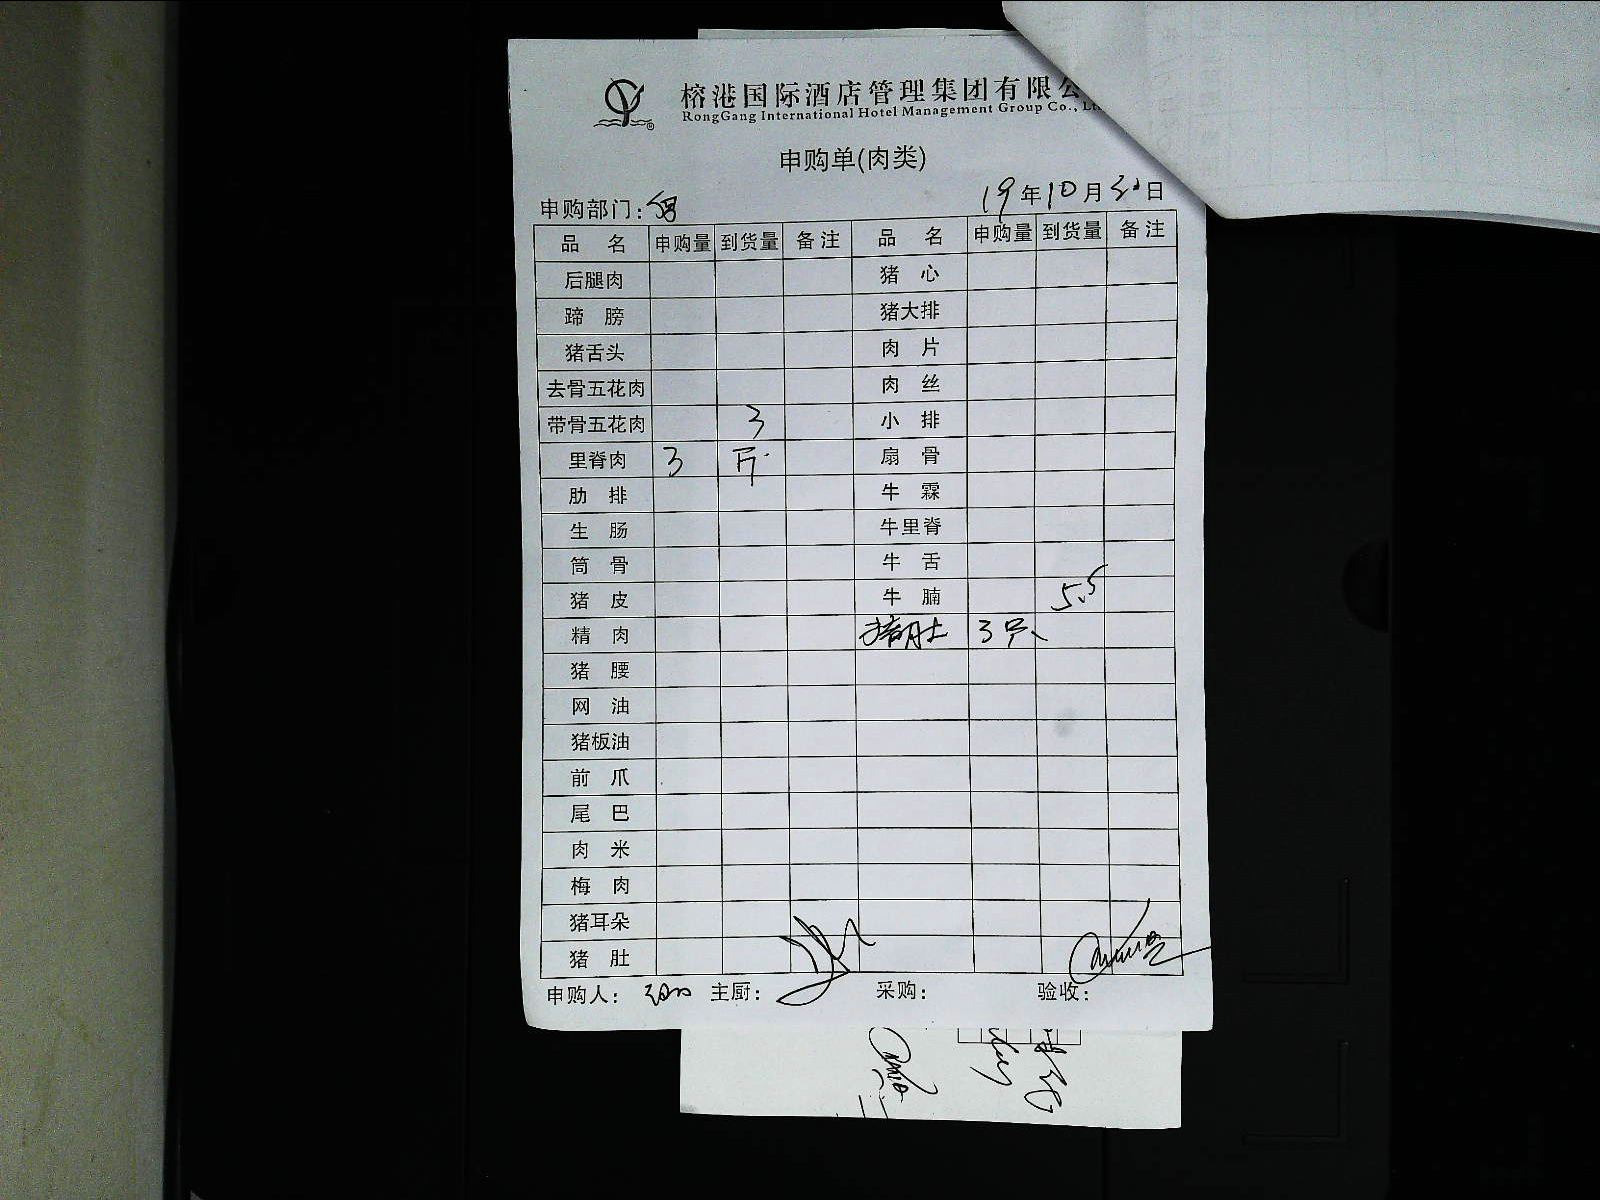 榕港国际酒店管理集团有限公
RongGang International Hotel Management Group Co., Lt
申购单(肉类)
申购部门: 19年10月30日
品 名 申购量 到货量 备注 品 名 申购量 到货量 备注
后腿肉 猪 心
蹄 膀 猪大排
猪舌头 肉 片
去骨五花肉 肉 丝
带骨五花肉 3 小 排
里脊肉 3 斤 扇 骨
肋 排 牛 霖
生 肠 牛里脊
筒 骨 牛 舌
猪 皮 牛 腩 5.5
精 肉 猪肚 3只
猪 腰
网 油
猪板油
前 爪
尾 巴
肉 米
梅 肉
猪耳朵
猪 肚
申购人: 主厨: 采购: 验收: